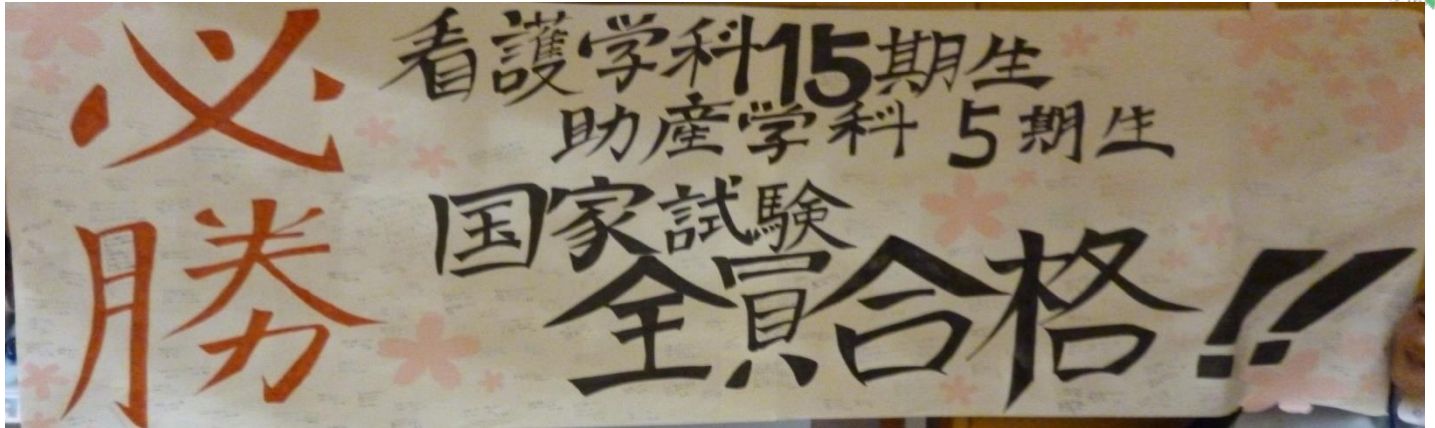 必勝
看護学科15期生
助産学科 5期生
国家試験
全員合格!!